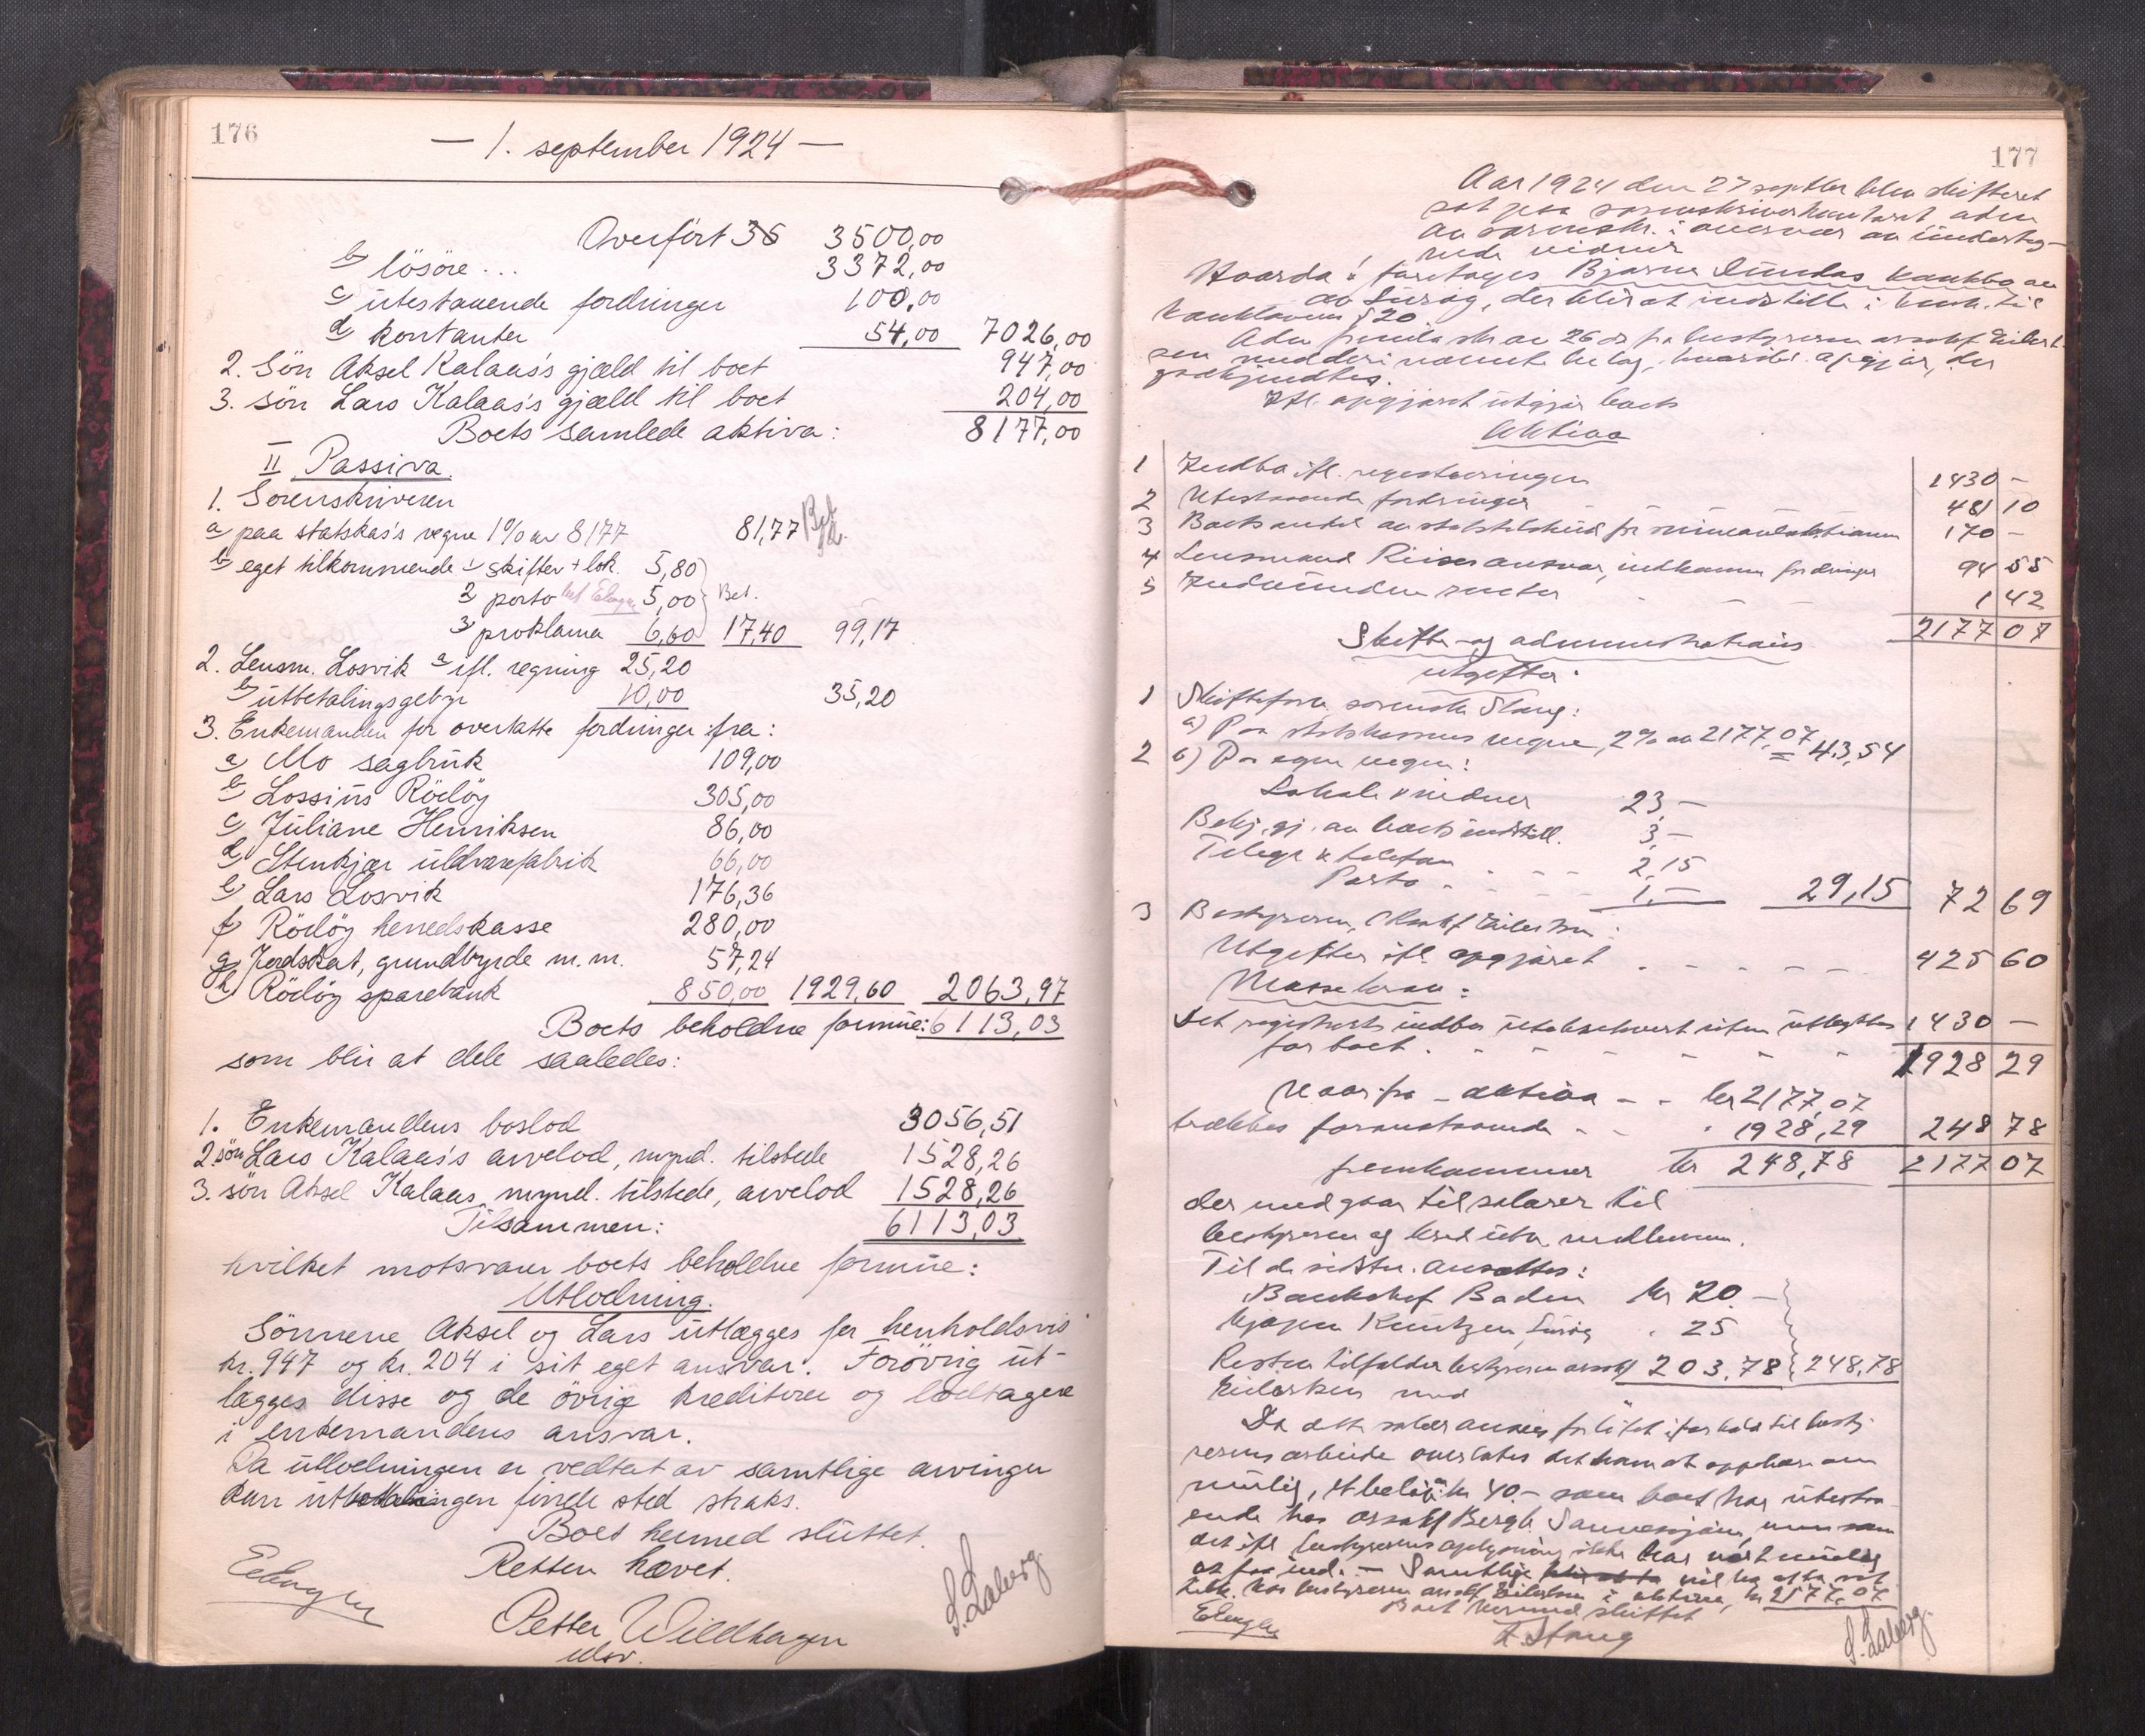 176
— 1. september 1924 —
Overført 35 3500,00
b) lösöre ... 3372,00
c) utestaaende fordringer 100,00
d) kontanter 54,00 7026,00
2. Sön Aksel Kalaas's gjæld til boet 947,00
3. sön Lars Kalaas's gjæld til boet 204,00
Boets samlede aktiva: 8177,00
II Passiva.
1. Sorenskriveren
a) paa statskas's vegne 1% av 8177 81,77
b) eget tilkommende 1) skifter + lok. 5,80
2) porto 5,00 Bet.
3) proklama 6,60 17,40 99,17
2. Lensm. Losvik a) ifl. regning 25,20
b) utbetalingsgebyr 10,00 35,20
3. Enkemanden for overlatte fordringer fra:
a) Mo sagbruk 109,00
b) Lossius Rödöy 305,00
c) Juliane Henriksen 86,00
d) Stenkjær uldvarefabrik 66,00
e) Lars Losvik 176,36
f) Rödöy herredskasse 280,00
g) Jordskat, grundbyrde m.m. 57,24
h) Rödöy sparebank 850,00 1929,60 2063,97
Boets beholdne formue: 6113,03
som blir at dele saaledes:
1. Enkemandens boslod 3056,51
2. sön Lars Kalaas's arvelod, mynd. tilstede 1528,26
3. sön Aksel Kalaas, mynd. tilstede, arvelod 1528,26
Tilsammen: 6113,03
hvilket motsvarer boets beholdne formue:
Utlodning.
Sönnene Aksel og Lars utlægges for henholdsvis
kr. 947 og kr. 204 i sit eget ansvar. Forövrig ut-
lægges disse og de övrige kreditorer og lodtagere
i enkemandens ansvar.
Da utlodningen er vedtat av samtlige arvinger
kan utbetalingen finde sted straks.
Boet hermed sluttet.
Retten hævet.
Petter Wildhagen
S. Laberg
177
Aar 1924 den 27 septbr blev skifteret
sat paa sorenskriverkontoret
av sorenskr. i overvær av underteg-
nede vidner
Hvorda: foretages Bjarne Sundas konkbo
av Lurøy, der blir at indstille i henh. til
konkloven § 20
godkjendtes.
Ifl. opgjøret utgjør boets
Aktiva
1 Indbo ifl. registreringen 1430 -
2 Utestaaende fordringer 481 10
3 Boets andel av statstilskud 170 -
4 Lensmand Riises ansvar, indkomne fordringer 94 55
5 Indvundne renter 1 42
2177 07
Skifte- og administrations
utgifter:
1 Skifteforv. sorenskr. Stang:
a) Paa statskassens vegne, 2% av 2177,07 = 43,54
2 b) Paa egne vegne:
Lokale & vidner 23,-
Bekj. gj. av boets indstill. 3,-
Telegr & telefon 2,15
Porto 1,- 29,15 72 69
3 Bestyreren, O.R.sakf Eilertsen:
Utgifter ifl. opgjøret 425 60
Massekrav:
Det registrerte indbo utelukkvert uten utbytte 1430 -
for boet 1928 29
Naar fra aktiva kr 2177,07
trækkes foranstaaende 1928,29 248 78
fremkommer kr 248,78 2177 07
der medgaar til salærer til
bestyreren og kred.utv. medlemmer.
Til de sidste ansættes:
Banksjef Baden kr 20.-
Kjøpm Knutzen, Lurøy 25
Resten tilfalder bestyreren orsakf 203,78 248,78
Eilertsen med
Da dette salær ansees for litet i forhold til besty-
rerens arbeide overlates det ham at oppebære om
mulig, et beløp kr 40.- som boet har utestaa-
ende hos orsakf Bergh Sannessjøen, men som
det ifl bestyrerens oplysning ikke har vært mulig
at faa ind. - Samtlige
kr 2177,07
Boet hermed sluttet
Stang
S. Laberg